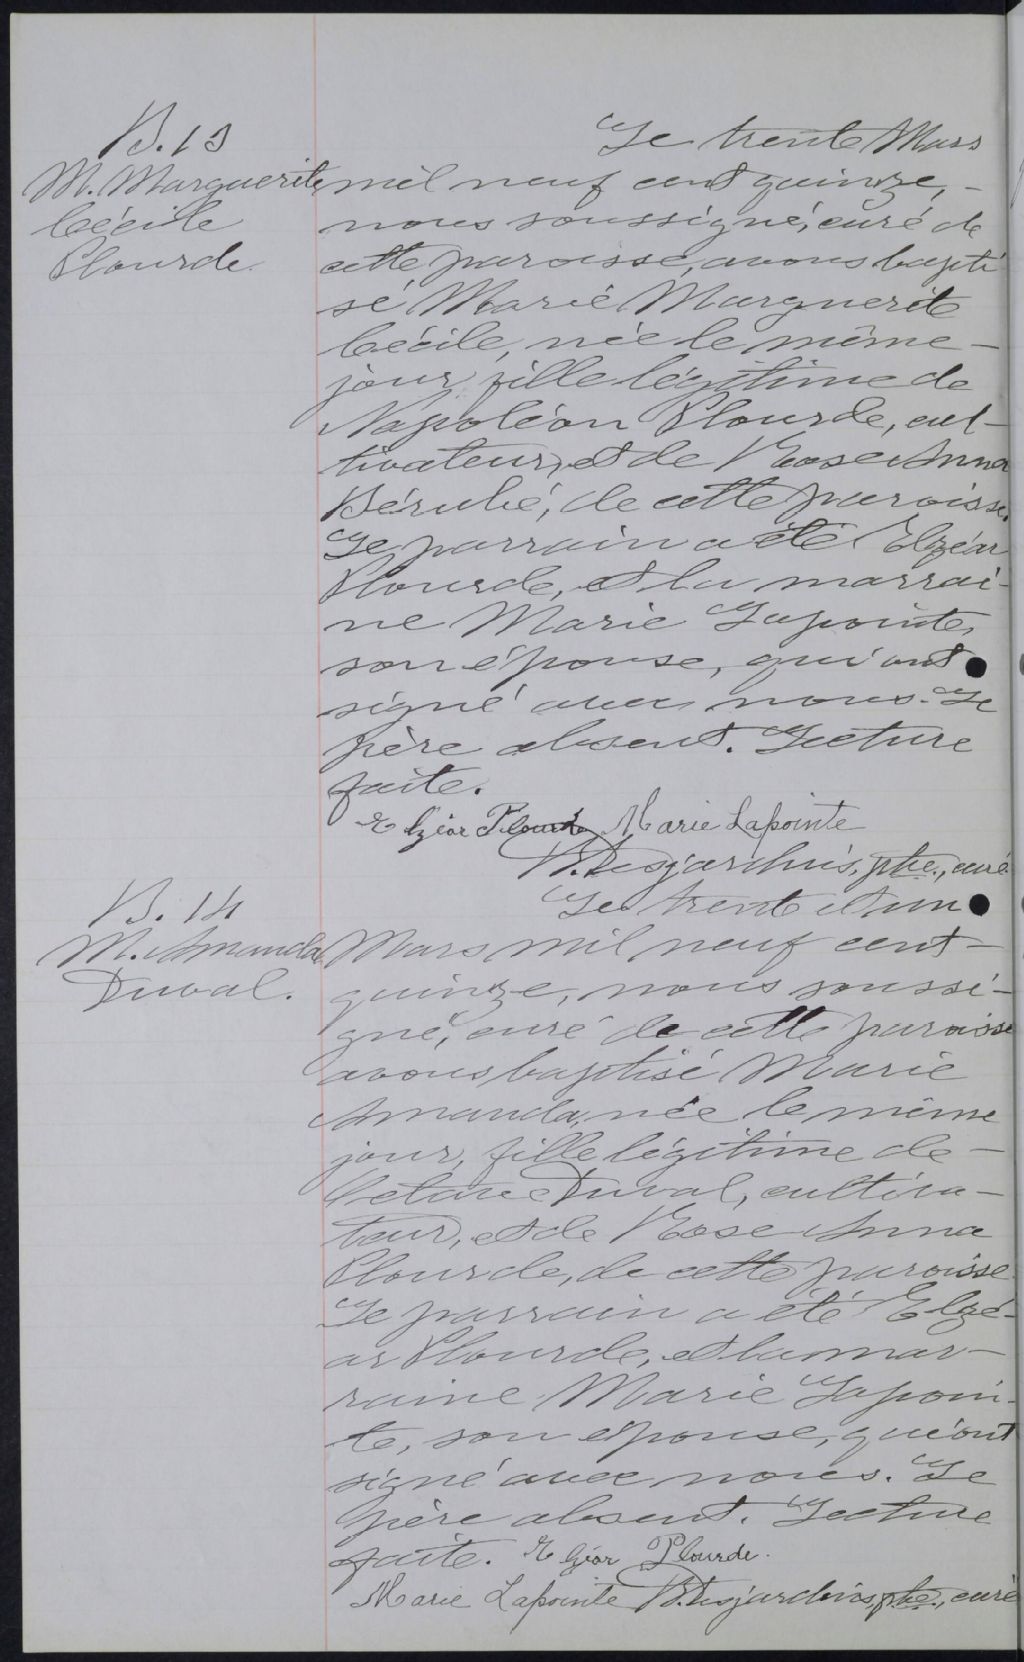 B. 13
M. Marguerite
Cécile
Plourde.
Le trente Mars
mil neuf cent quinze, -
nous soussigné, curé de
cette paroisse, avons bapti
sé Marie Marguerite
Cécile, née le même -
jour, fille légitime de
Napoléon Plourde, cul-
tivateur, et de Rose Anna
Bérubé, de cette paroisse.
Le parrain a été Elzéar
Plourde, et la marrai-
ne Marie Lapointe,
son épouse, qui ont
signé avec nous. Le
père absent. Lecture
faite.
Elzéar Plourde Marie Lapointe
Desjardins, ptre., curé
B. 14
M. Amanda
Duval.
Le trente et un
Mars mil neuf cent -
quinze, nous soussi-
gné, curé de cette paroisse
avons baptisé Marie
Amanda, née le même
jour, fille légitime de -
Duval, cultiva-
teur, et de Rose Anna
Plourde, de cette paroisse.
Le parrain a été Elzé-
ar Plourde, et la mar-
raine Marie Lapoin-
te, son épouse, qui ont
signé avec nous. Le
père absent. Lecture
faite. Elzéar Plourde.
Marie Lapointe Desjardins, ptre., curé